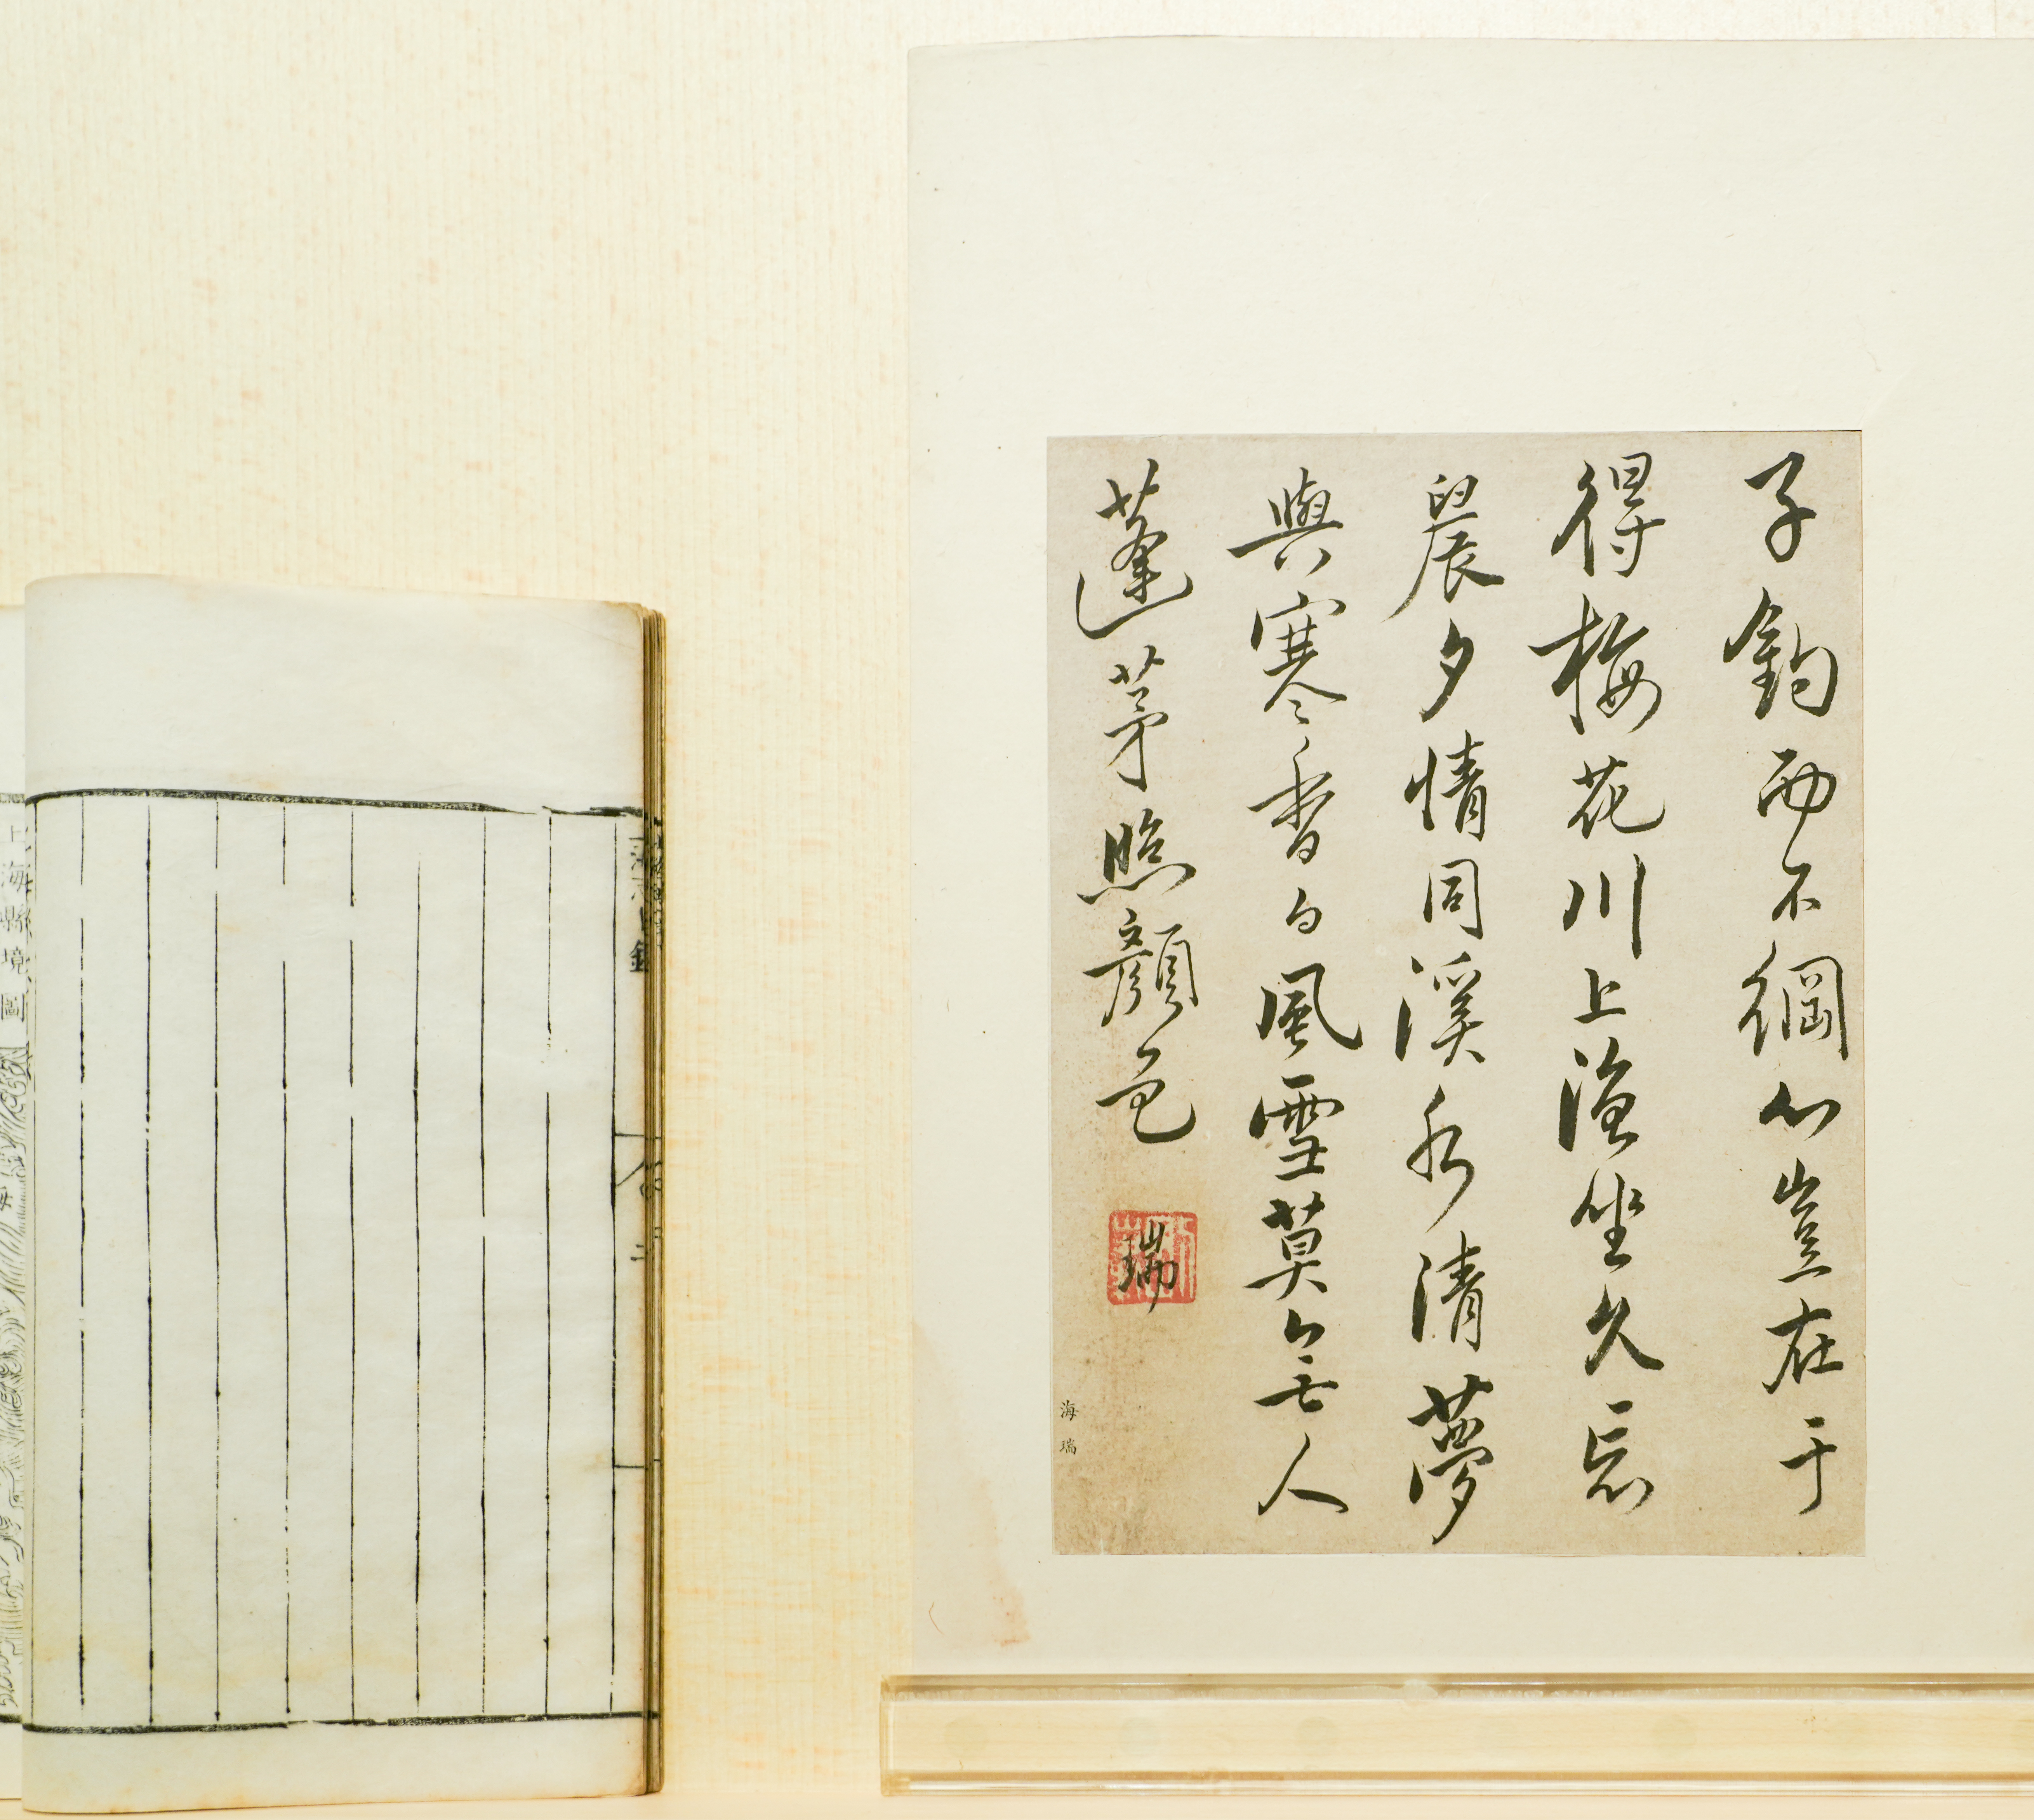 子釣而不綱心豈在于
得梅花川上漁坐久忘
晨夕情同溪水清夢
與寒香白風雪莫言無人
蓬茅照顏色
瑞
海瑞
上海縣境圖